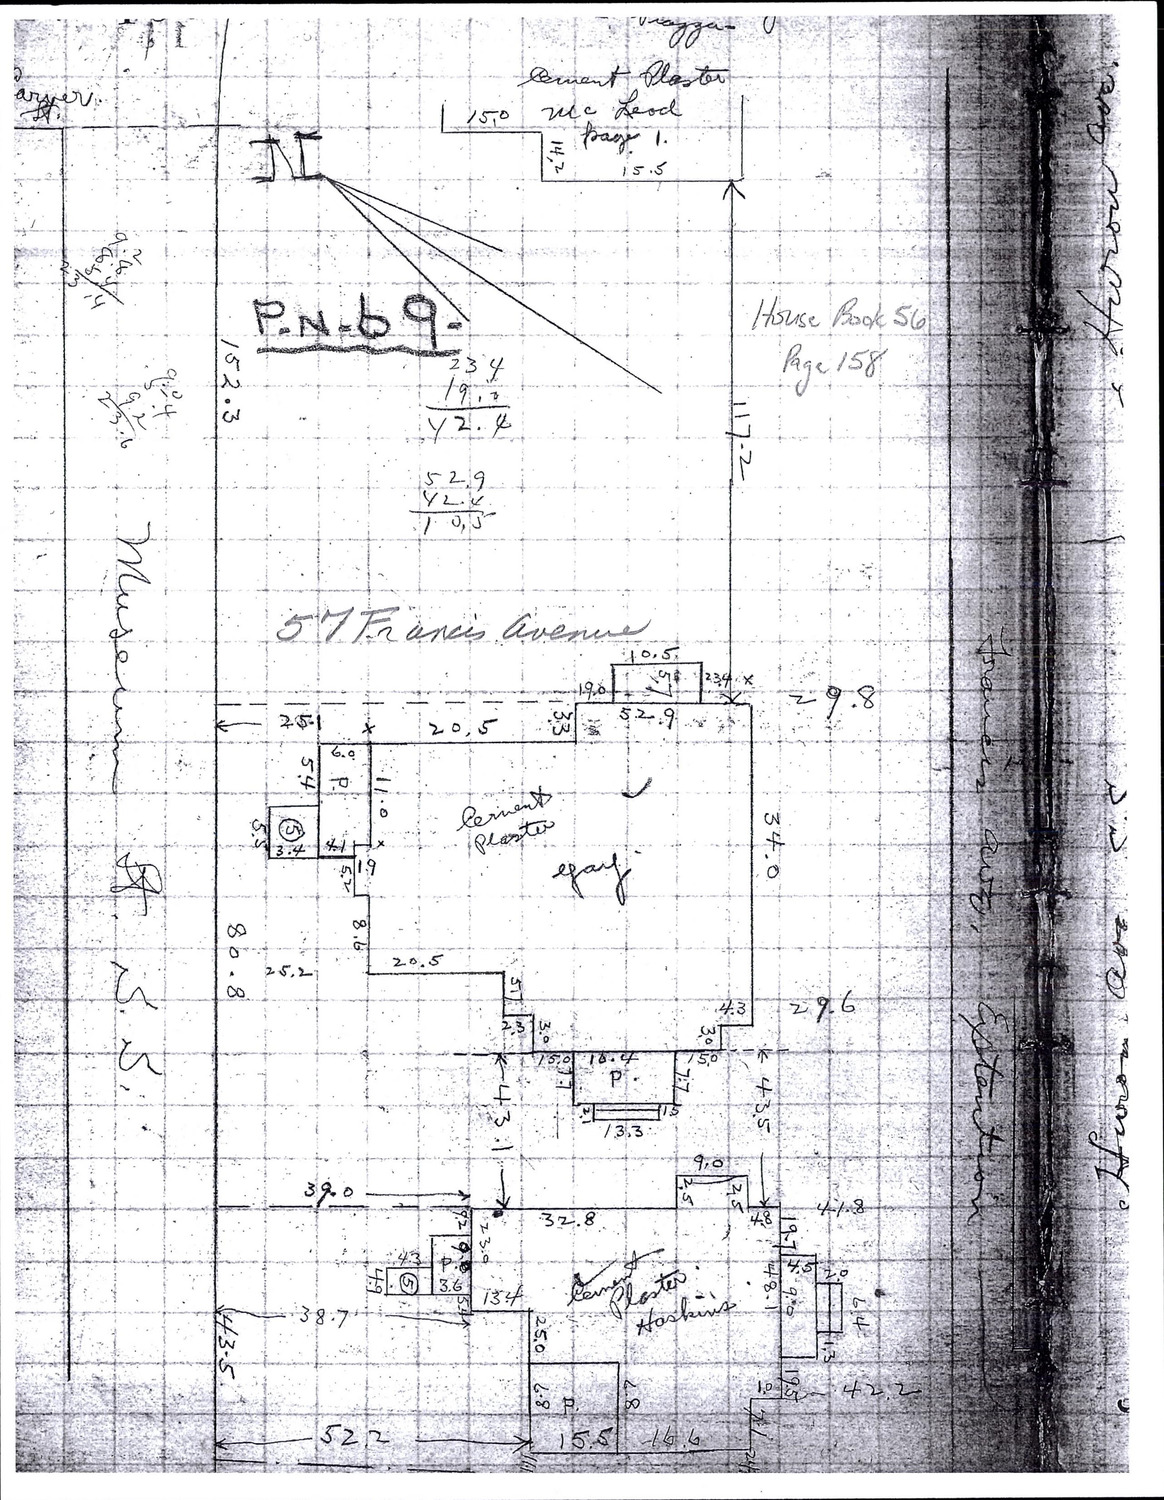 Piazza
Cement Plaster
Mc Leod
page 1.
15.0
14.2
15.5
N
P.N-69-
House Book 56
Page 158
152.3
117.2
23.4
19.0
42.4
52.9
42.4
10.5
9.2
23.6
Museum St. S.S.
57 Francis Avenue
10.5
5.7
19.0
23.4 x
52.9
29.8
25.1
x
20.5
3.3
6.0
5.4
P.
11.0
5.5
5
3.4
4.1
x
1.9
5.2
Cement
Plaster
34.0
8.6
80.8
25.2
20.5
5.1
2.3
3.0
4.3
3.0
29.6
15.0
16.4
15.0
7.7
P.
7.7
2.1
1.5
13.3
43.1
43.5
Francis Ave. Extention
Huron Ave S.S.
Huron Ave
9.0
2.5
2.5
39.0
32.8
4.8
41.8
9.2
23.0
19.7
4.3
P.
4.9
5
3.6
5.4
13.4
Cement
Plaster
Hoskins
4.5
48.1
9.0
2.0
6.4
1.3
38.7
43.5
25.0
19.5
42.2
1.0
6.8
P.
6.8
7.1
52.2
15.5
16.6